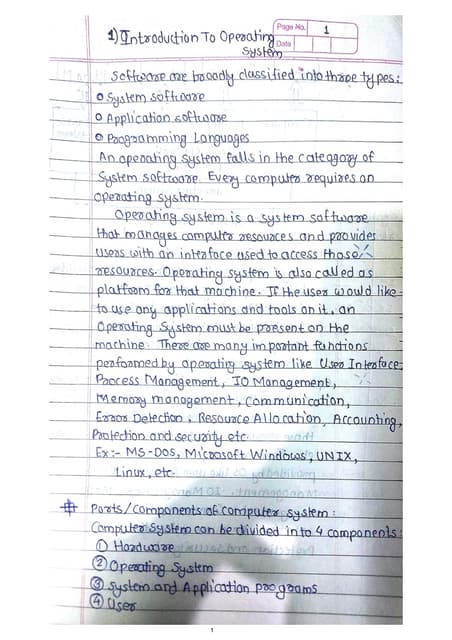 Page No. 1
Date
1) Introduction To Operating
System
Software are broadly classified into three types:
System software
Application software
Programming Languages
An operating system falls in the category of
System software. Every computer requires an
Operating system.
Operating system is a system software
that manages computer resources and provides
users with an interface used to access those
resources. Operating system is also called as
platform for that machine. If the user would like
to use any applications and tools on it, an
Operating System must be present on the
machine. There are many important functions
performed by operating system like User Interface,
Process Management, IO Management,
Memory management, Communication,
Error Detection, Resource Allocation, Accounting,
Protection and security etc.
Ex:- MS-DOS, Microsoft Windows, UNIX,
Linux, etc.
Parts/Components of computer system:
Computer System can be divided into 4 components:
① Hardware
② Operating System
③ System and Application programs
④ User
1